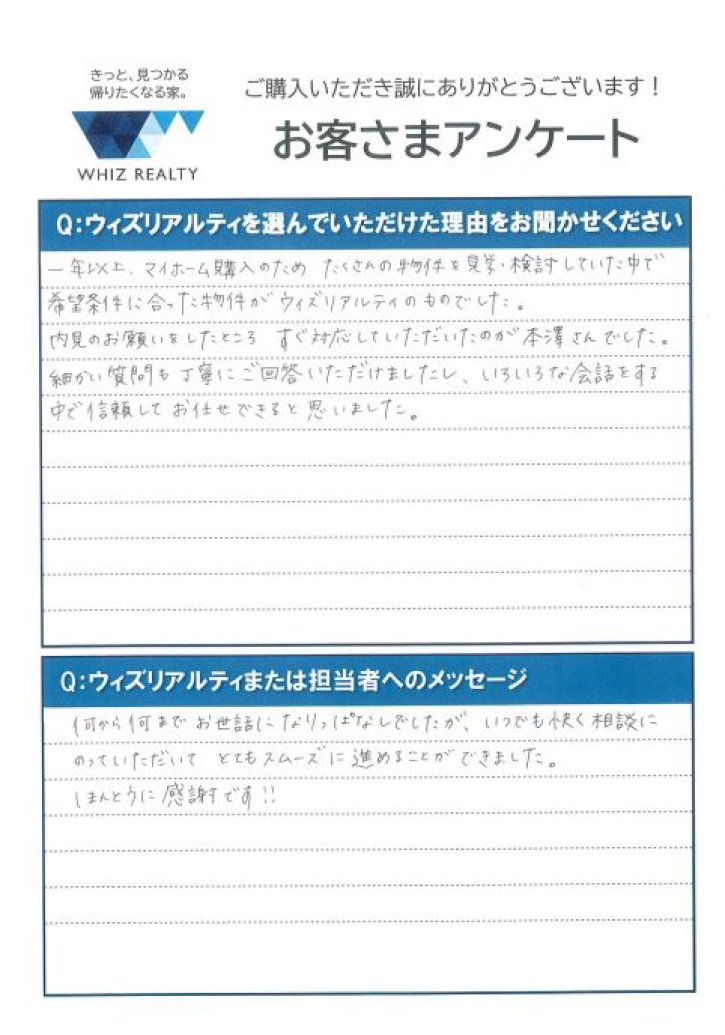 きっと、見つかる
帰りたくなる家。
WHIZ REALTY
ご購入いただき誠にありがとうございます！
お客さまアンケート
Q：ウィズリアルティを選んでいただけた理由をお聞かせください
一年以上、マイホーム購入のため たくさんの物件を見学・検討していた中で
希望条件に合った物件がウィズリアルティのものでした。
内見のお願いをしたところ すぐ対応していただいたのが本澤さんでした。
細かい質問も丁寧にご回答いただけましたし、いろいろな会話をする
中で信頼してお任せできると思いました。
Q：ウィズリアルティまたは担当者へのメッセージ
何から何までお世話になりっぱなしでしたが、いつでも快く相談に
のっていただいて とてもスムーズに進めることができました。
ほんとうに感謝です!!